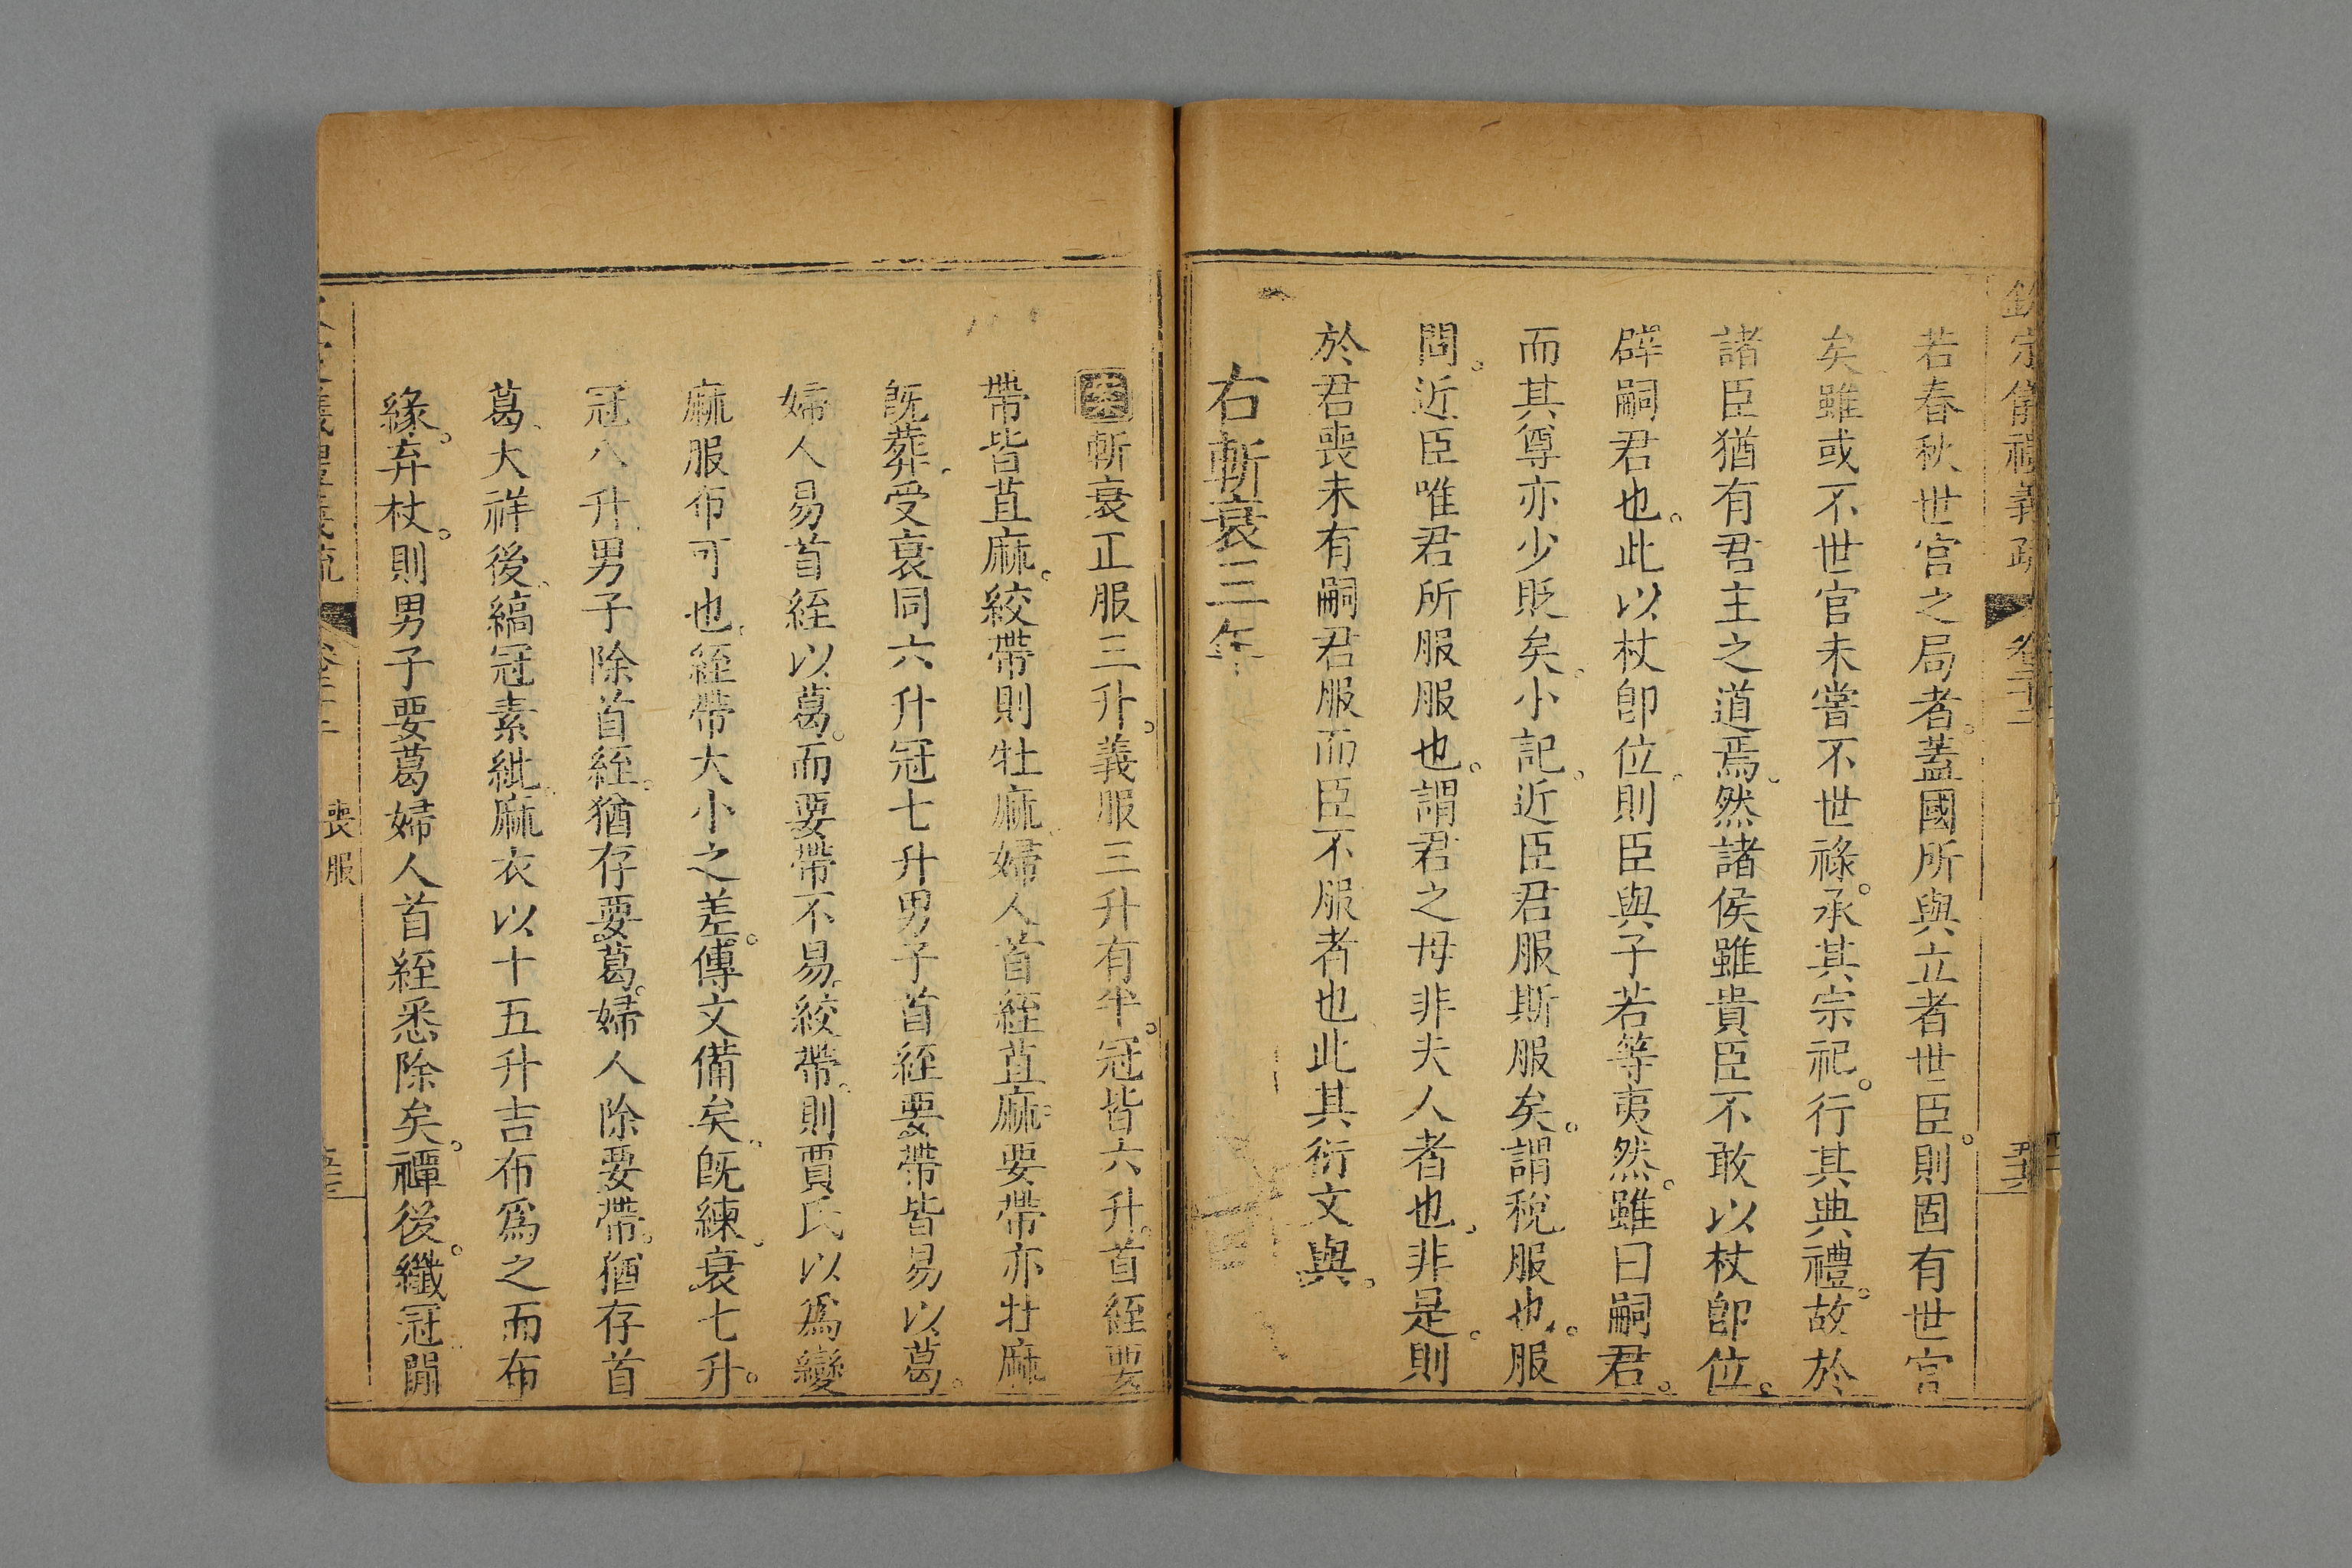 欽定儀禮義疏
若春秋世宫之局者。蓋國所與立者世臣。則固有世官
矣雖或不世官未嘗不世祿。承其宗祀。行其典禮。故於
諸臣猶有君主之道焉。然諸侯雖貴臣不敢以杖卽位。
辟嗣君也。此以杖卽位。則臣與子若等夷然。雖曰嗣君。
而其尊亦少貶矣。小記。近臣君服斯服矣。謂稅服也。服
問。近臣唯君所服服也。謂君之母非夫人者也。非是。則
於君喪未有嗣君服而臣不服者也此其衍文與。
右斬衰三年
案斬衰正服三升。義服三升有半。冠皆六升。首絰要
帶皆苴麻。絞帶則牡麻。婦人首絰苴麻。要帶亦牡麻
旣葬。受衰同六升冠七升男子首絰要帶皆易以葛。
婦人易首絰以葛。而要帶不易。絞帶。則賈氏以爲變
麻服布可也。絰帶大小之差。傳文備矣。旣練。衰七升。
冠八升。男子除首絰。猶存要葛。婦人除要帶。猶存首
葛。大祥後。縞冠素紕。麻衣以十五升吉布爲之而布
緣。弃杖。則男子要葛婦人首絰悉除矣。禫後。纖冠閒
喪服